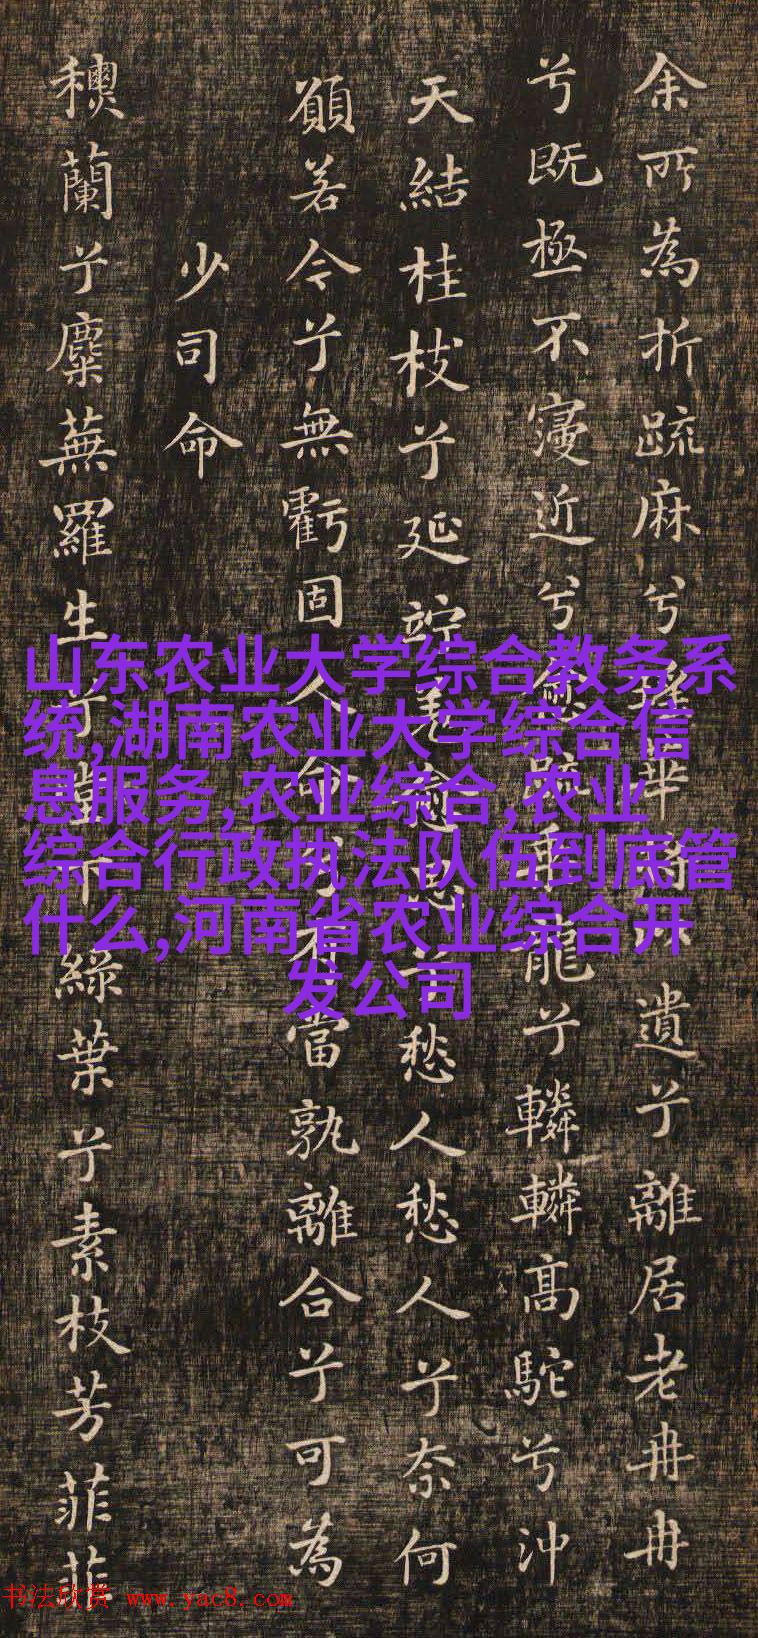 余所為折疏麻兮瑤華將以遺兮離居老冉冉
兮既極不寖近兮愈疏乘龍兮轔轔高駝兮沖
天結桂枝兮延竚羌愈思兮愁人愁人兮奈何
願若今兮無虧固人命兮有當孰離合兮可為
少司命
秋蘭兮麋蕪羅生兮堂下綠葉兮素枝芳菲菲
山东农业大学综合教务系
统,湖南农业大学综合信
息服务,农业综合,农业
综合行政执法队伍到底管
什么,河南省农业综合开
发公司
书法欣赏 www.yac8.com